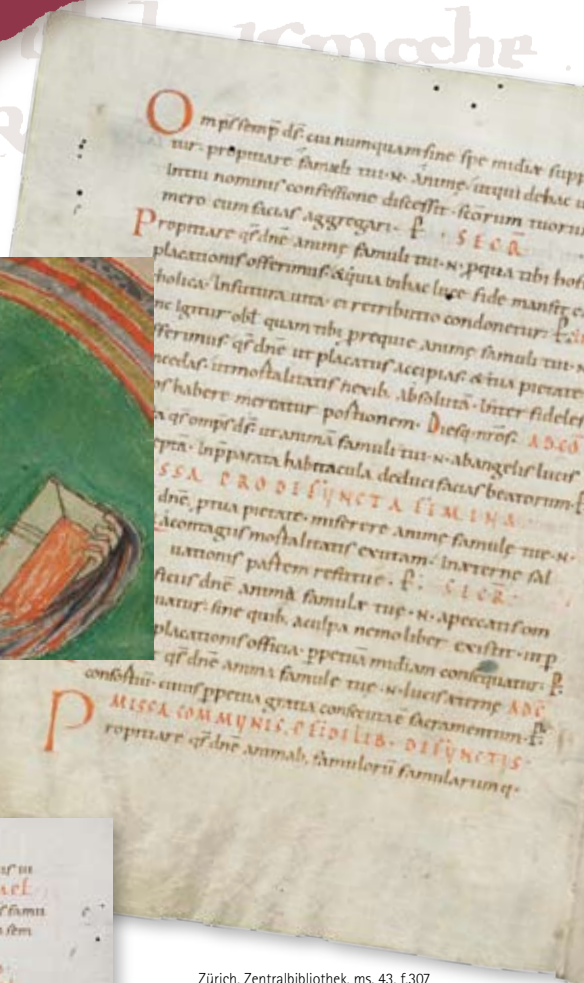 Omp̄s semp̄ ds̄. cui numquam sine spe mīdiæ supp
tur: propitiare famuli tui · N · animæ, ut qui de hac u
in tui nominis confessione discessit · sc̄orum tuorum
mero eum facias aggregari · P̄ SECR̄
Propitiare qs̄ dn̄e animæ famuli tui · N · p qua tibi hos
placationis offerimus. & quia in hac luce fide mansit c
holica · in futura uita ei retributio condonetur: P̄
nc igitur obl̄ quam tibi pro requie animæ famuli tui · N
fferimus qs̄ dn̄e ut placatus accipias & tua pietate
cedas. ut mortalitatis nexib. absoluta · inter fideles
os habere mereatur portionem. Diesq. nr̄os. AD CO
a qs̄ omps̄ ds̄. ut animā famuli tui · N · ab angelis lucis
eptā · in p̄parata habitacula deduci facias beatorum.
SSA PRO DEFUNCTA FEMINA
dn̄e, p tua pietate · miserere animæ famulæ tuæ · N ·
a contagiis mortalitatis exutam · in æternæ sal
uationis partem restitue · P̄: SECR̄
ficiis dn̄e anima famulæ tuæ · N · a peccatis om
uatur: sine quib. a culpa nemo liber existit · ut p
placationis officia · p̄petuā mīdiam consequatur:
qs̄ dn̄e anima famulæ tuæ · N · lucis æternæ AD C
consortiū · cuius p̄petua gratia consecuta ē sacramentum · P̄:
MISSA COMMUNIS, P FIDELIB · DEFUNCTIS ·
Propitiare qs̄ dn̄e animab. famulorū famularumq ·
us ut
famu
sem
Zürich, Zentralbibliothek, ms. 43, f.307